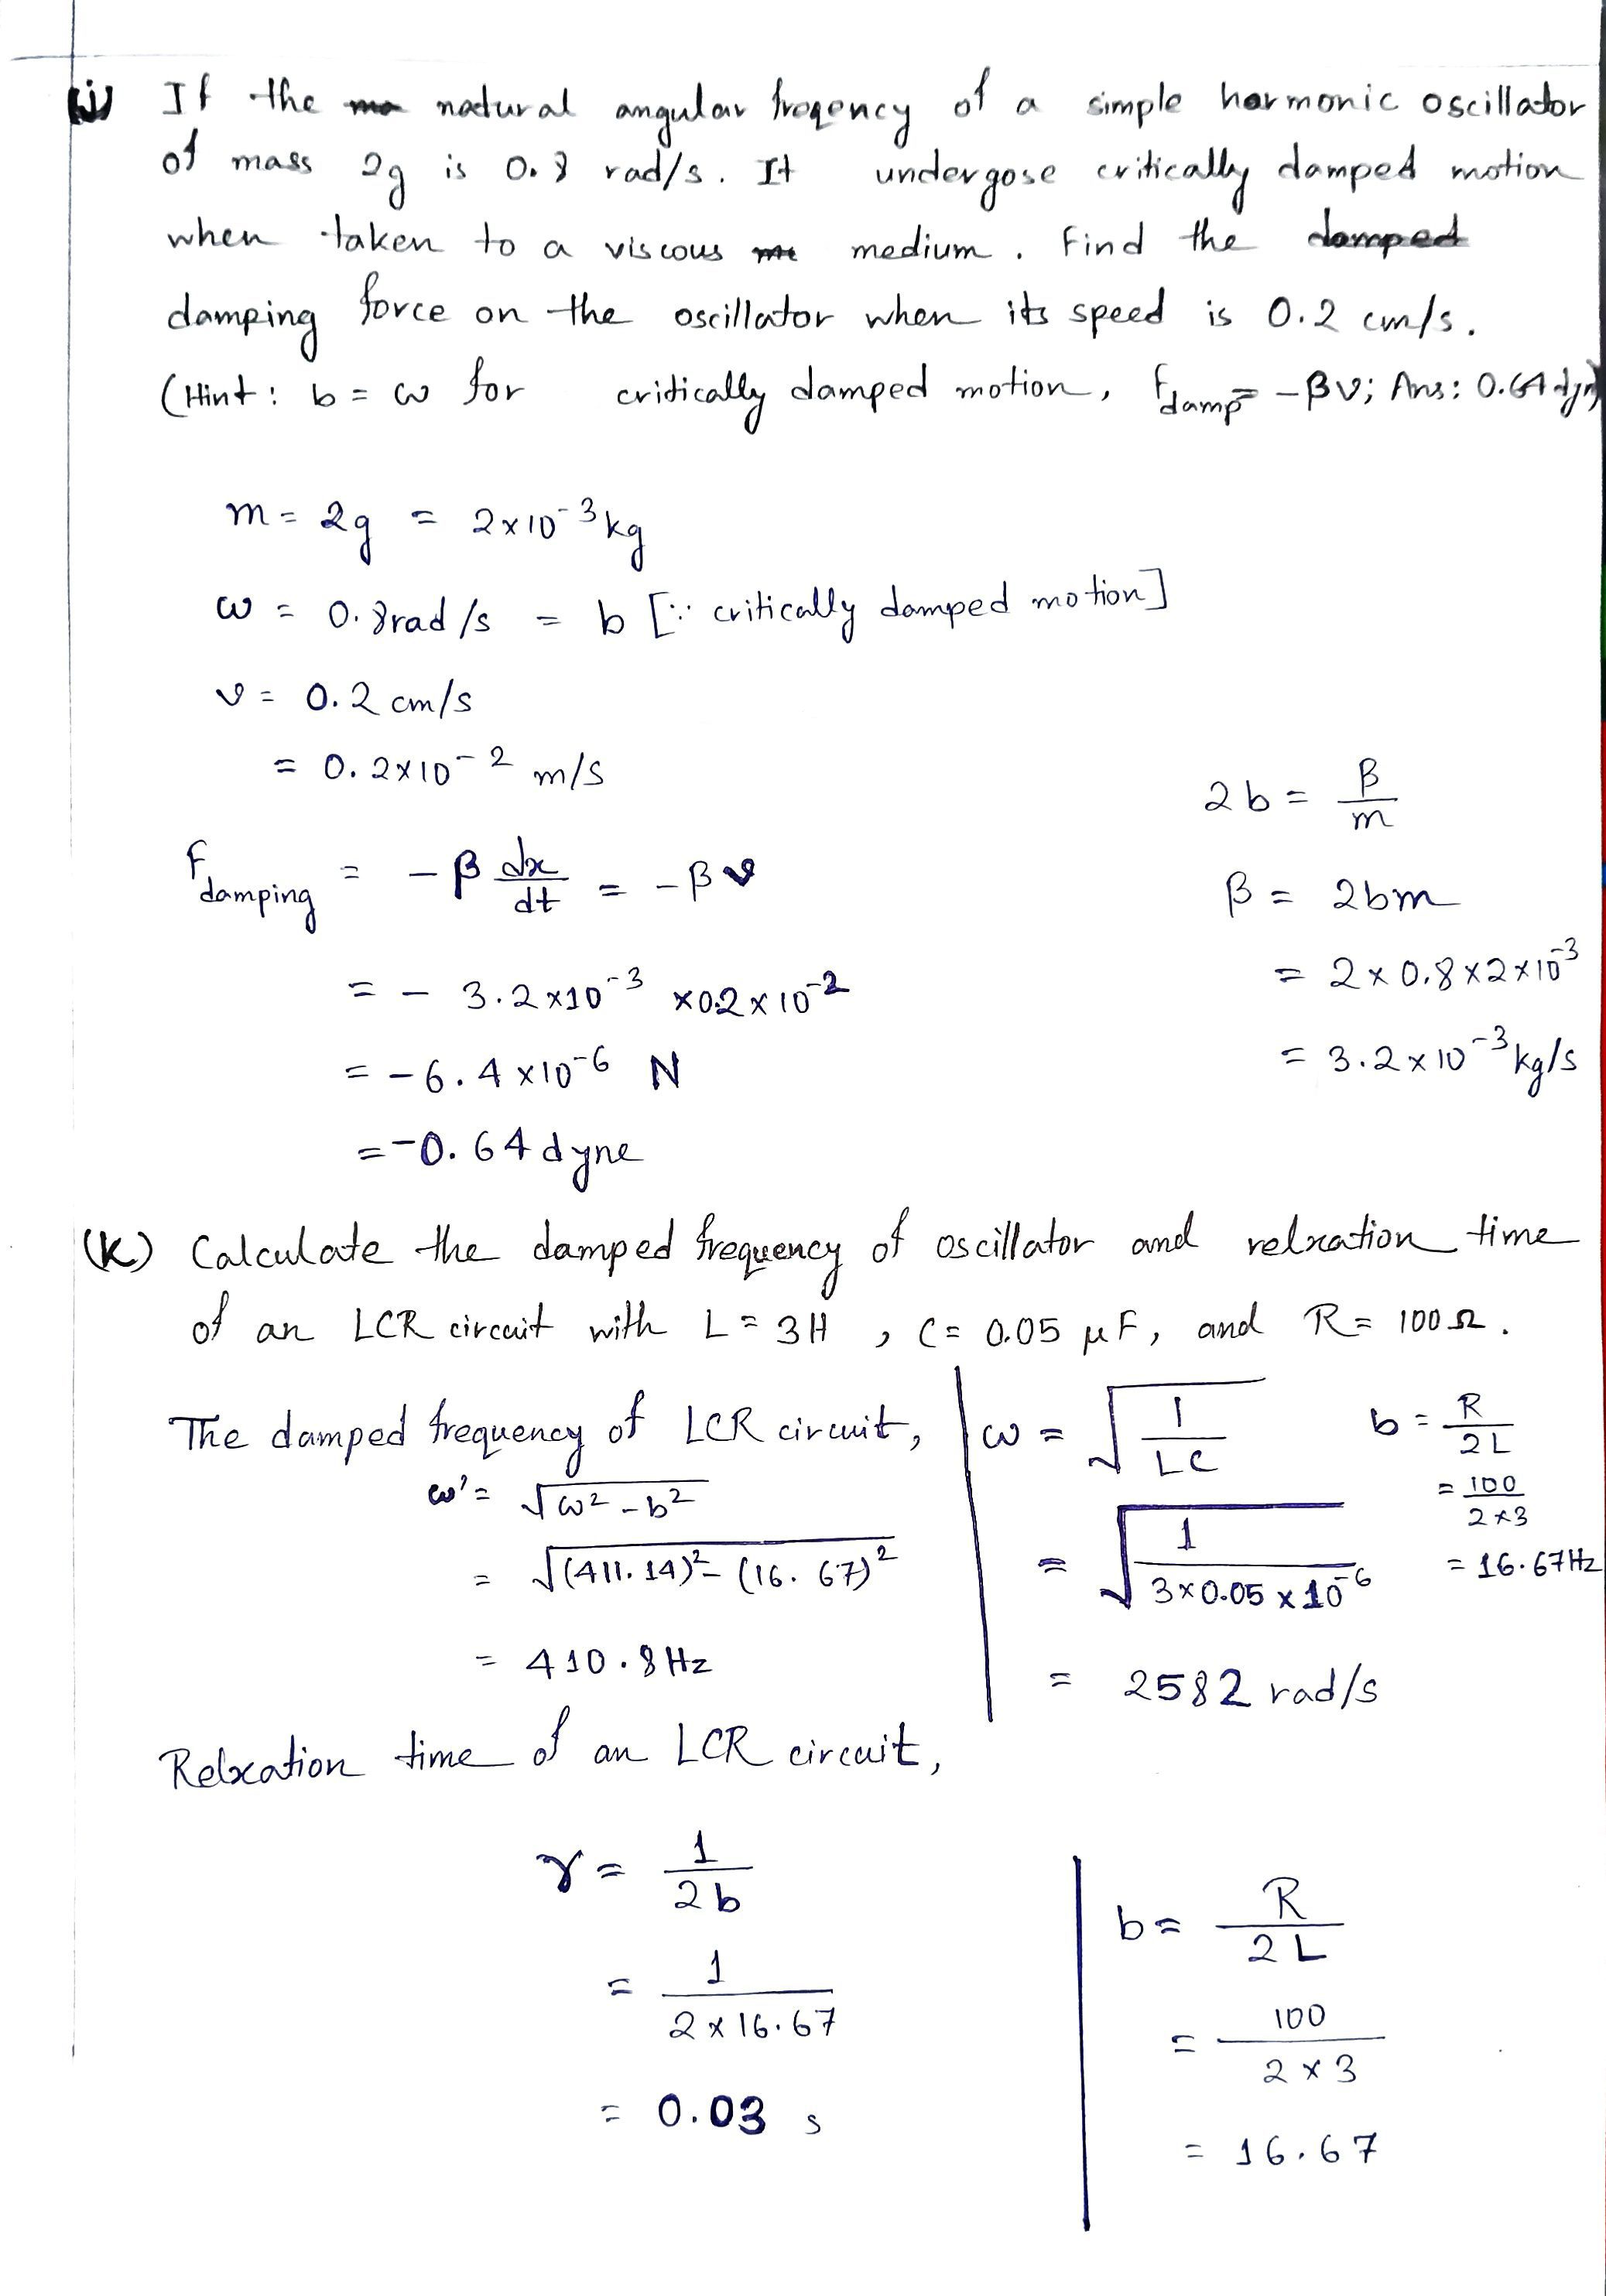 (j) If the natural angular freqency of a simple harmonic oscillator
of mass 2g is 0.8 rad/s. It undergose critically damped motion
when taken to a viscous medium. Find the damped
damping force on the oscillator when its speed is 0.2 cm/s.
(Hint: b = ω for critically damped motion, Fdamp = -βv; Ans: 0.64 dyn)
m = 2g = 2×10⁻³ kg
ω = 0.8rad/s = b [∵ critically damped motion]
v = 0.2 cm/s
= 0.2×10⁻² m/s
2b = β/m
F damping = -β dx/dt = -βv
β = 2bm
= - 3.2×10⁻³ ×0.2×10⁻²
= 2×0.8×2×10⁻³
= -6.4×10⁻⁶ N
= 3.2×10⁻³ kg/s
= -0.64 dyne
(K) Calculate the damped frequency of oscillator and relxation time
of an LCR circuit with L = 3H, C = 0.05 μF, and R = 100Ω.
The damped frequency of LCR circuit,
ω' = √(ω² - b²)
= √((411.14)² - (16.67)²)
= 410.8Hz
ω = √(1/LC)
= √(1/(3×0.05×10⁻⁶))
= 2582 rad/s
b = R/2L
= 100/(2×3)
= 16.67Hz
Relxation time of an LCR circuit,
γ = 1/2b
= 1/(2×16.67)
= 0.03 s
b = R/2L
= 100/(2×3)
= 16.67